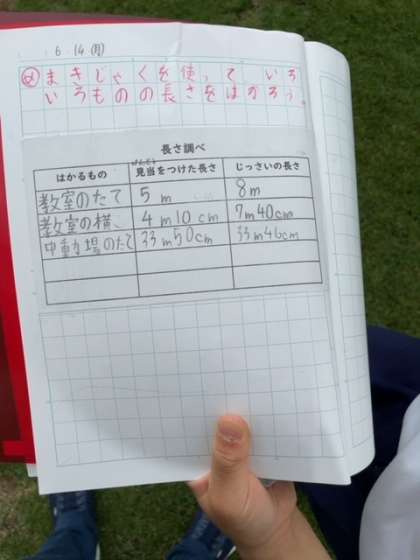 6.14(月)
め まきじゃくを使って、いろ
いろなものの長さをはかろう。
長さ調べ
はかるもの 見当をつけた長さ じっさいの長さ
けんとう
教室のたて 5m 8m
教室の横 4m10cm 7m40cm
中動場のたて 33m50cm 33m46cm